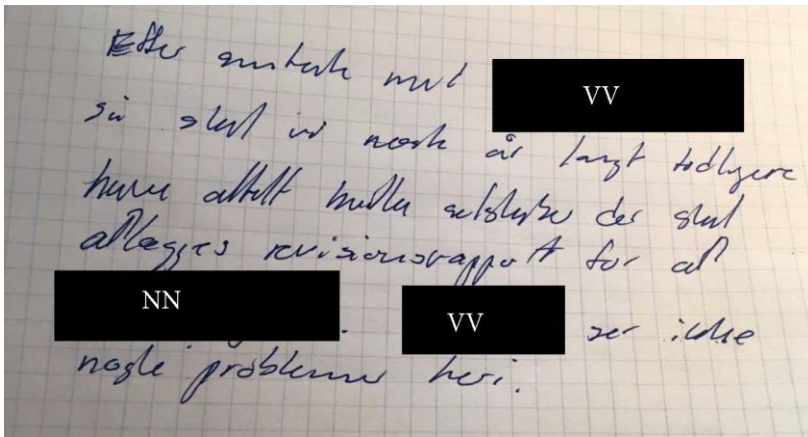 Efter samtale med VV
så skal vi næste år langt tidligere
have aftalt hvilke selskaber der skal
aflægges revisionsrapport for af
NN. VV ser ikke
nogle problemer heri.